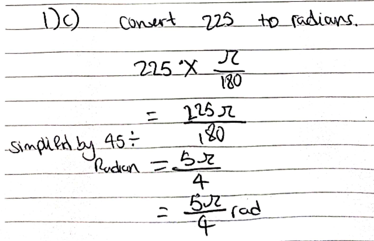 1)c) convert 225 to radians.
225 × π/180
= 225π/180
simplified by 45÷
Radian = 5π/4
= 5π/4 rad